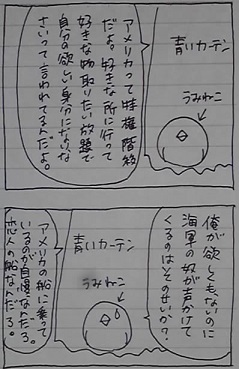 青いカーテン
うみねこ
アメリカって特権階級
だよ。好きな所に行って
好きな物取りたい放題で
自分の欲しい身分になりな
さいって言われてるんだよ。
俺が欲しくもないのに
海軍の奴が声かけて
くるのはそのせいか?
青いカーテン
うみねこ
アメリカの船に乗って
いるのが自慢なんだろ。
恋人の船なんだろ。